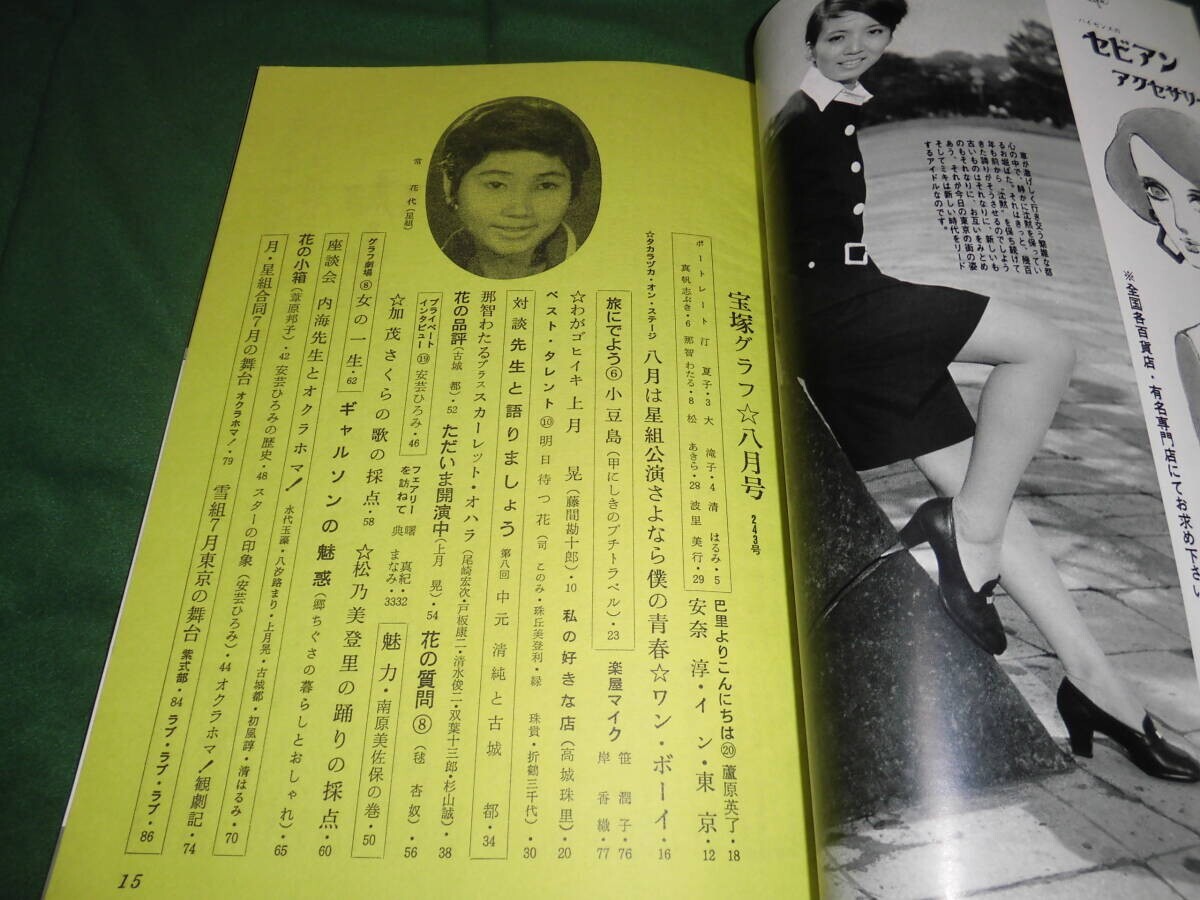 ハイセンスの
セビアン
アクセサリー
※全国各百貨店・有名専門店にてお求め下さい
車が激しく行き交う繁雑な都
心の中で、静かに沈黙を保ってい
るお堀ばた。それはきっと、幾百
年も前から〝沈黙〟を保ち続けて
きた誇りがそうさせるのでしよう
古いものはそれなりに、新しいも
のもそれなりに、お互いをみとめ
あう、それが今日の東京の街の姿
そしてミキは新しい時代をリード
するアイドルなのです。
宝塚グラフ☆八月号 243号
ポートレート 汀 夏子・3 大 滝子・4 清 はるみ・5
真帆志ぶき・6 那智わたる・8 松 あきら・28 波里 美行・29
巴里よりこんにちは⑳ 蘆原英了・18
安奈 淳・イン・東京・12
☆タカラヅカ・オン・ステージ 八月は星組公演さよなら僕の青春☆ワン・ボーイ・16
旅にでよう⑥小豆島(甲にしきのプチトラベル)・23
楽屋マイク 笹 潤子・76
岸 香織・77
☆わがゴヒイキ上月 晃(藤間勘十郎)・10 私の好きな店(高城珠里)・20
ベスト・タレント⑩明日待つ花(司 このみ・珠丘美登利・緑 珠貴・折鶴三千代)・30
対談先生と語りましょう 第八回 中元 清純と古城 都・34
那智わたるプラススカーレット・オハラ(尾崎宏次・戸板康二・清水俊二・双葉十三郎・杉山誠)・38
花の品評(古城 都)・52 ただいま開演中(上月 晃)・54 花の質問⑧(毬 杏奴)・56
プライベートインタビュー⑲安芸ひろみ・46
フェアリーを訪ねて 曙 真紀・32
典 まなみ・33
魅力・南原美佐保の巻・50
☆加茂さくらの歌の採点・58 ☆松乃美登里の踊りの採点・60
グラフ劇場⑧女の一生・62 ギャルソンの魅惑(郷ちぐさの暮らしとおしゃれ)・65
座談会 内海先生とオクラホマ! 水代玉藻・八汐路まり・上月晃・古城都・初風諄・清はるみ・70
花の小箱(葦原邦子)・42 安芸ひろみの歴史・48 スターの印象(安芸ひろみ)・44 オクラホマ!観劇記・74
月・星組合同7月の舞台 オクラホマ!・79 雪組7月東京の舞台 紫式部・84 ラブ・ラブ・ラブ・86
常 花代(星組)
15